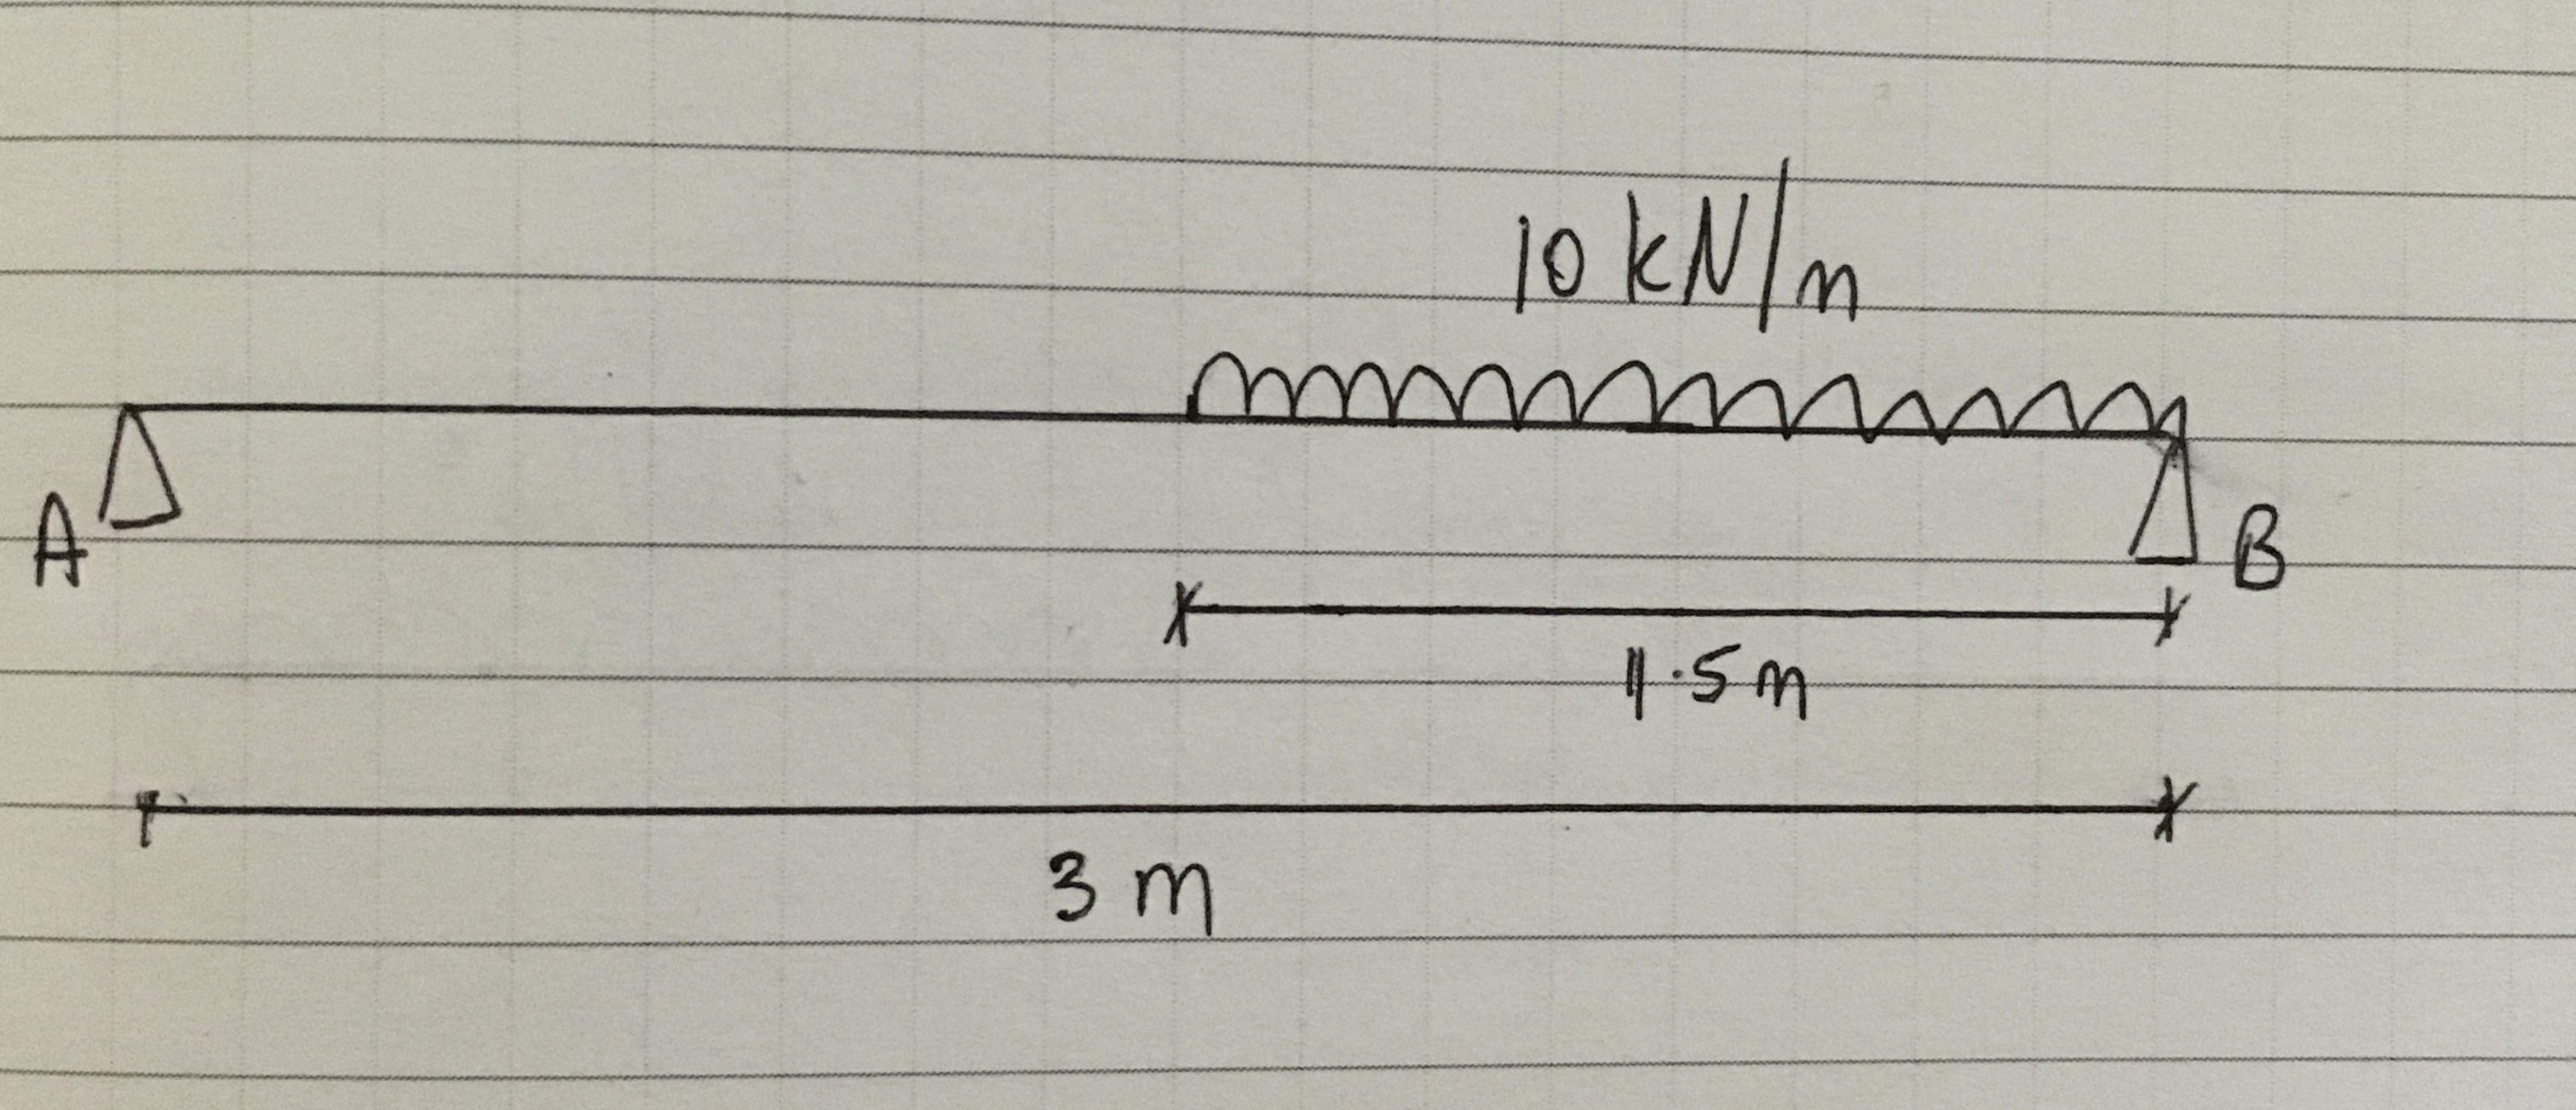 10 kN/m
A
B
1.5 m
3 m